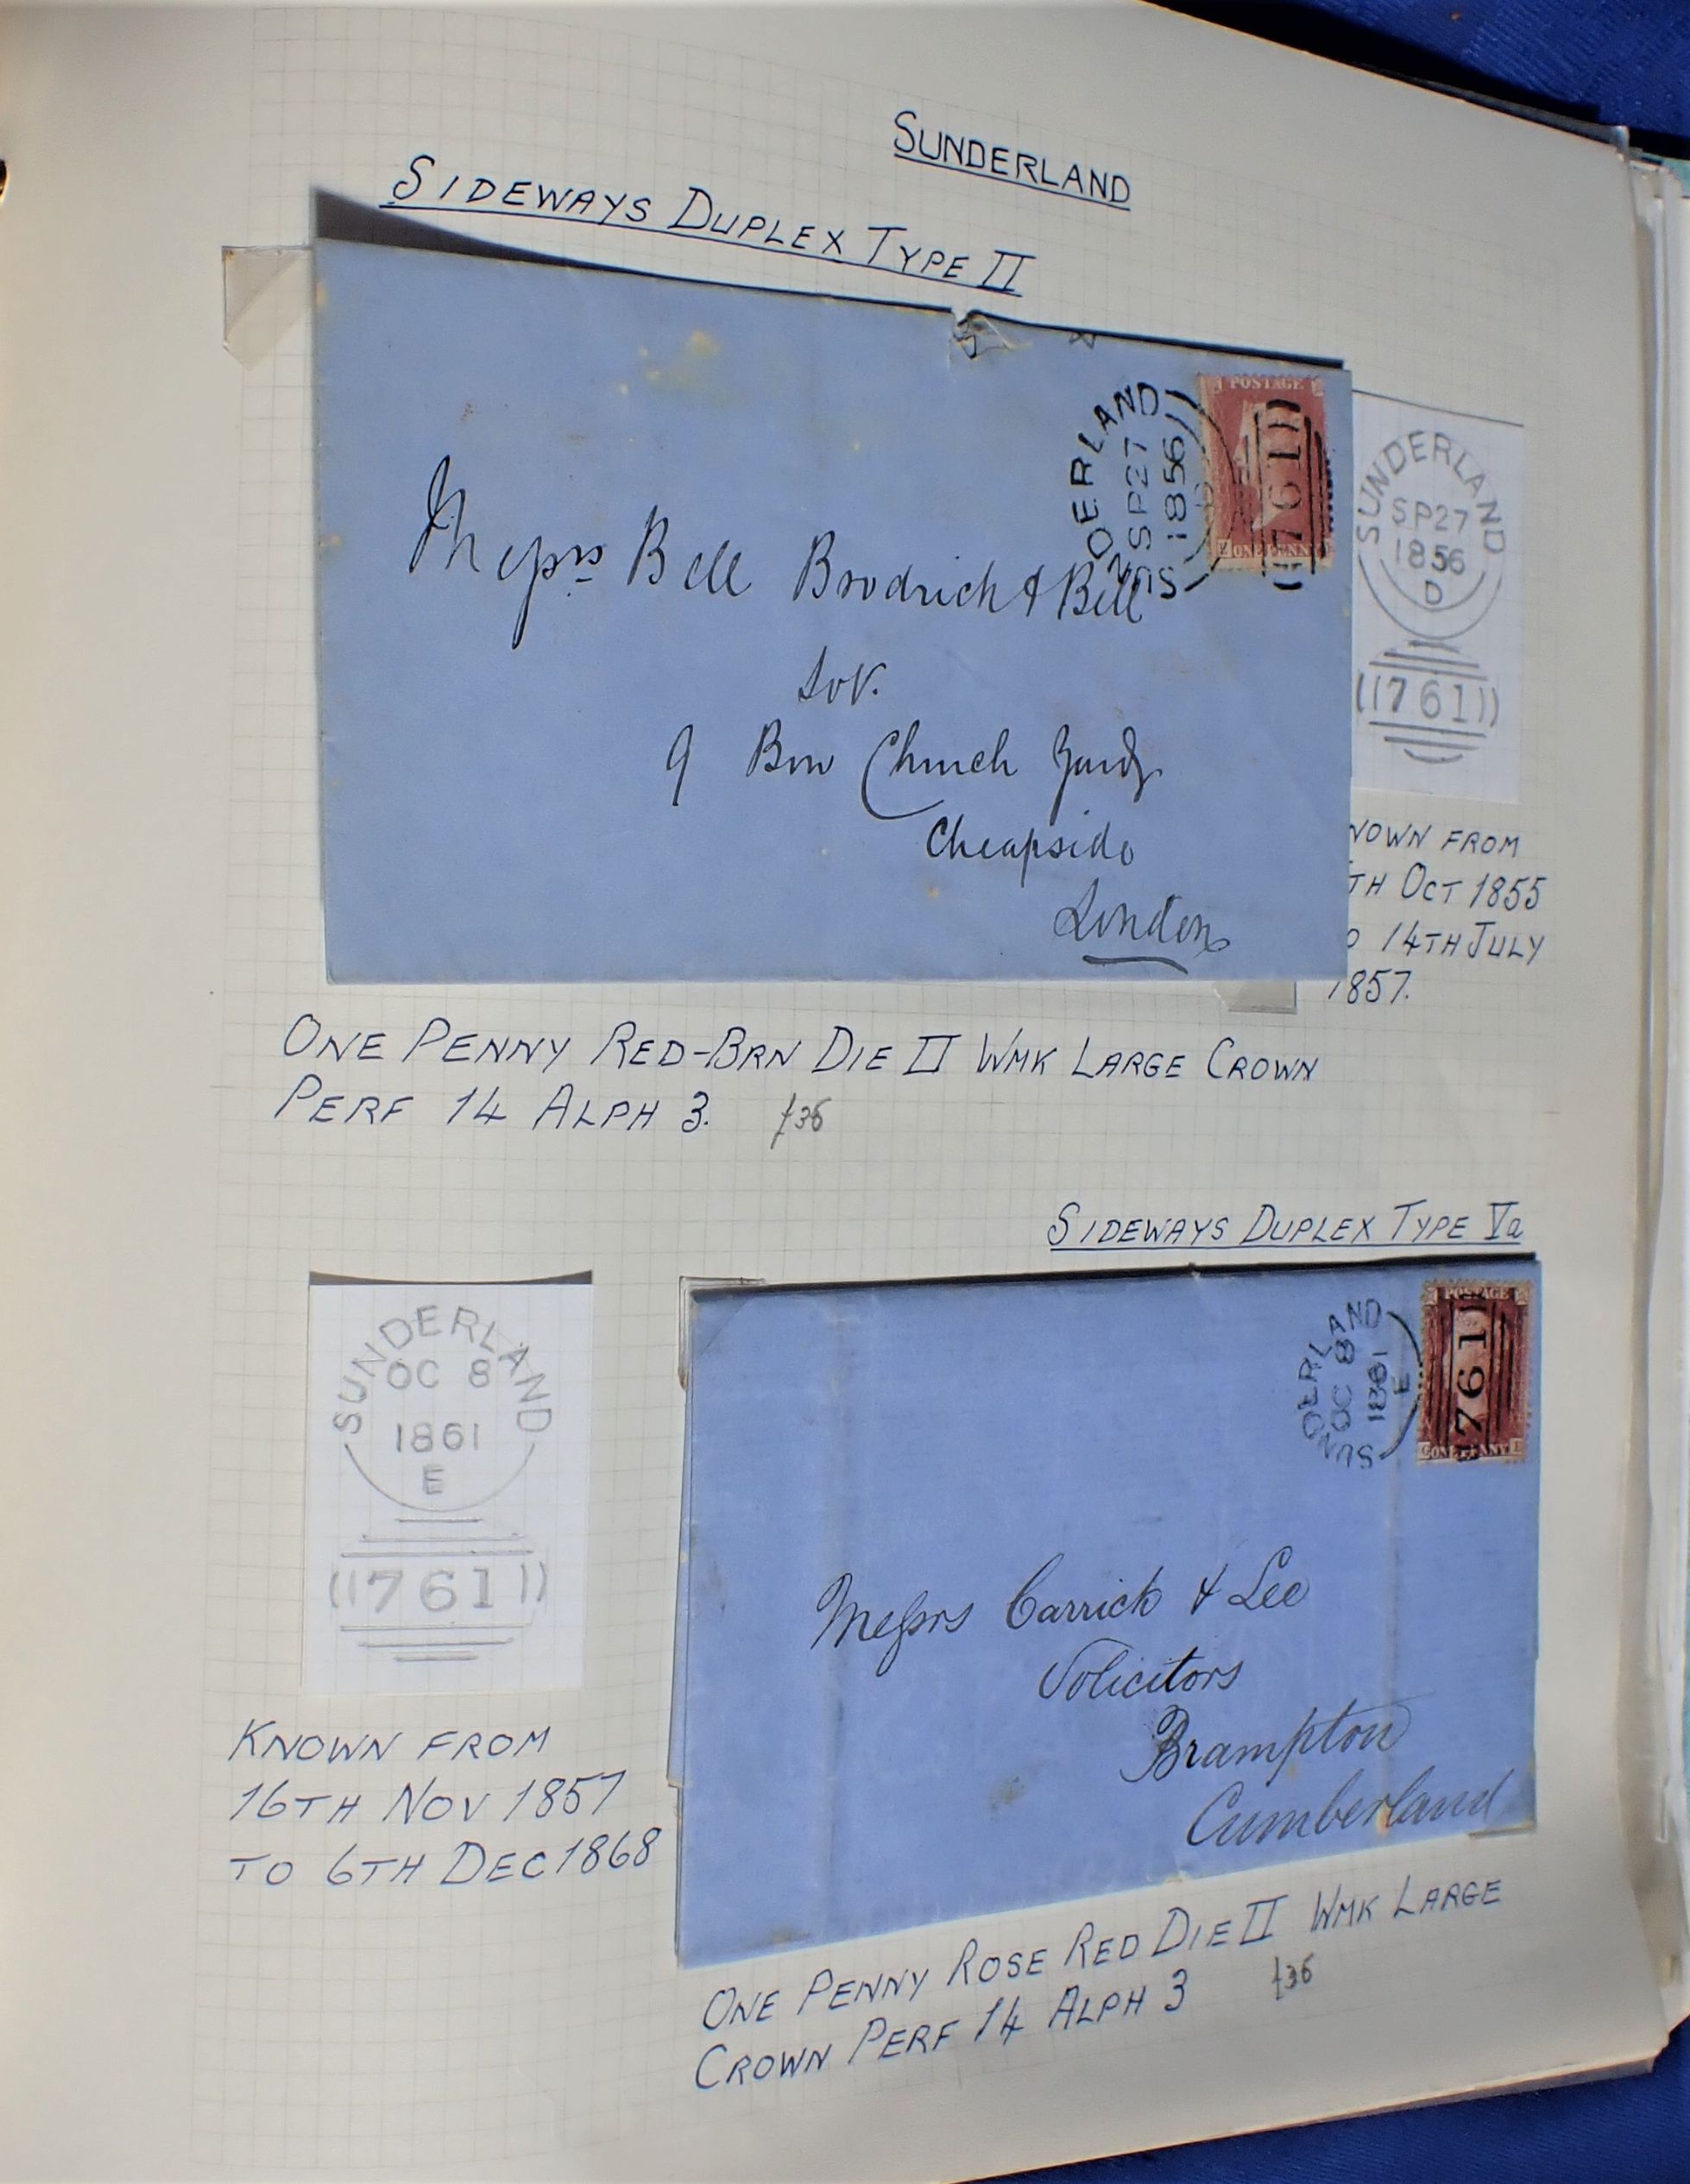 SUNDERLAND
SIDEWAYS DUPLEX TYPE II
SUNDERLAND
SP27
1856
POSTAGE
ONE PENNY
761
Messrs Bell Brodrick & Bell
9 Bow Church Yard
Cheapside
London
SUNDERLAND
SP27
1856
D
761
NOWN FROM
TH OCT 1855
O 14TH JULY
1857.
ONE PENNY RED-BRN DIE II WMK LARGE CROWN
PERF 14 ALPH 3. £36
SIDEWAYS DUPLEX TYPE Va
SUNDERLAND
OC 8
1861
E
761
SUNDERLAND
OC 8
1861
E
POSTAGE
ONE PENNY
761
Messrs Carrick & Lee
Solicitors
Brampton
Cumberland
KNOWN FROM
16TH NOV 1857
TO 6TH DEC 1868
ONE PENNY ROSE RED DIE II WMK LARGE
CROWN PERF 14 ALPH 3 £36